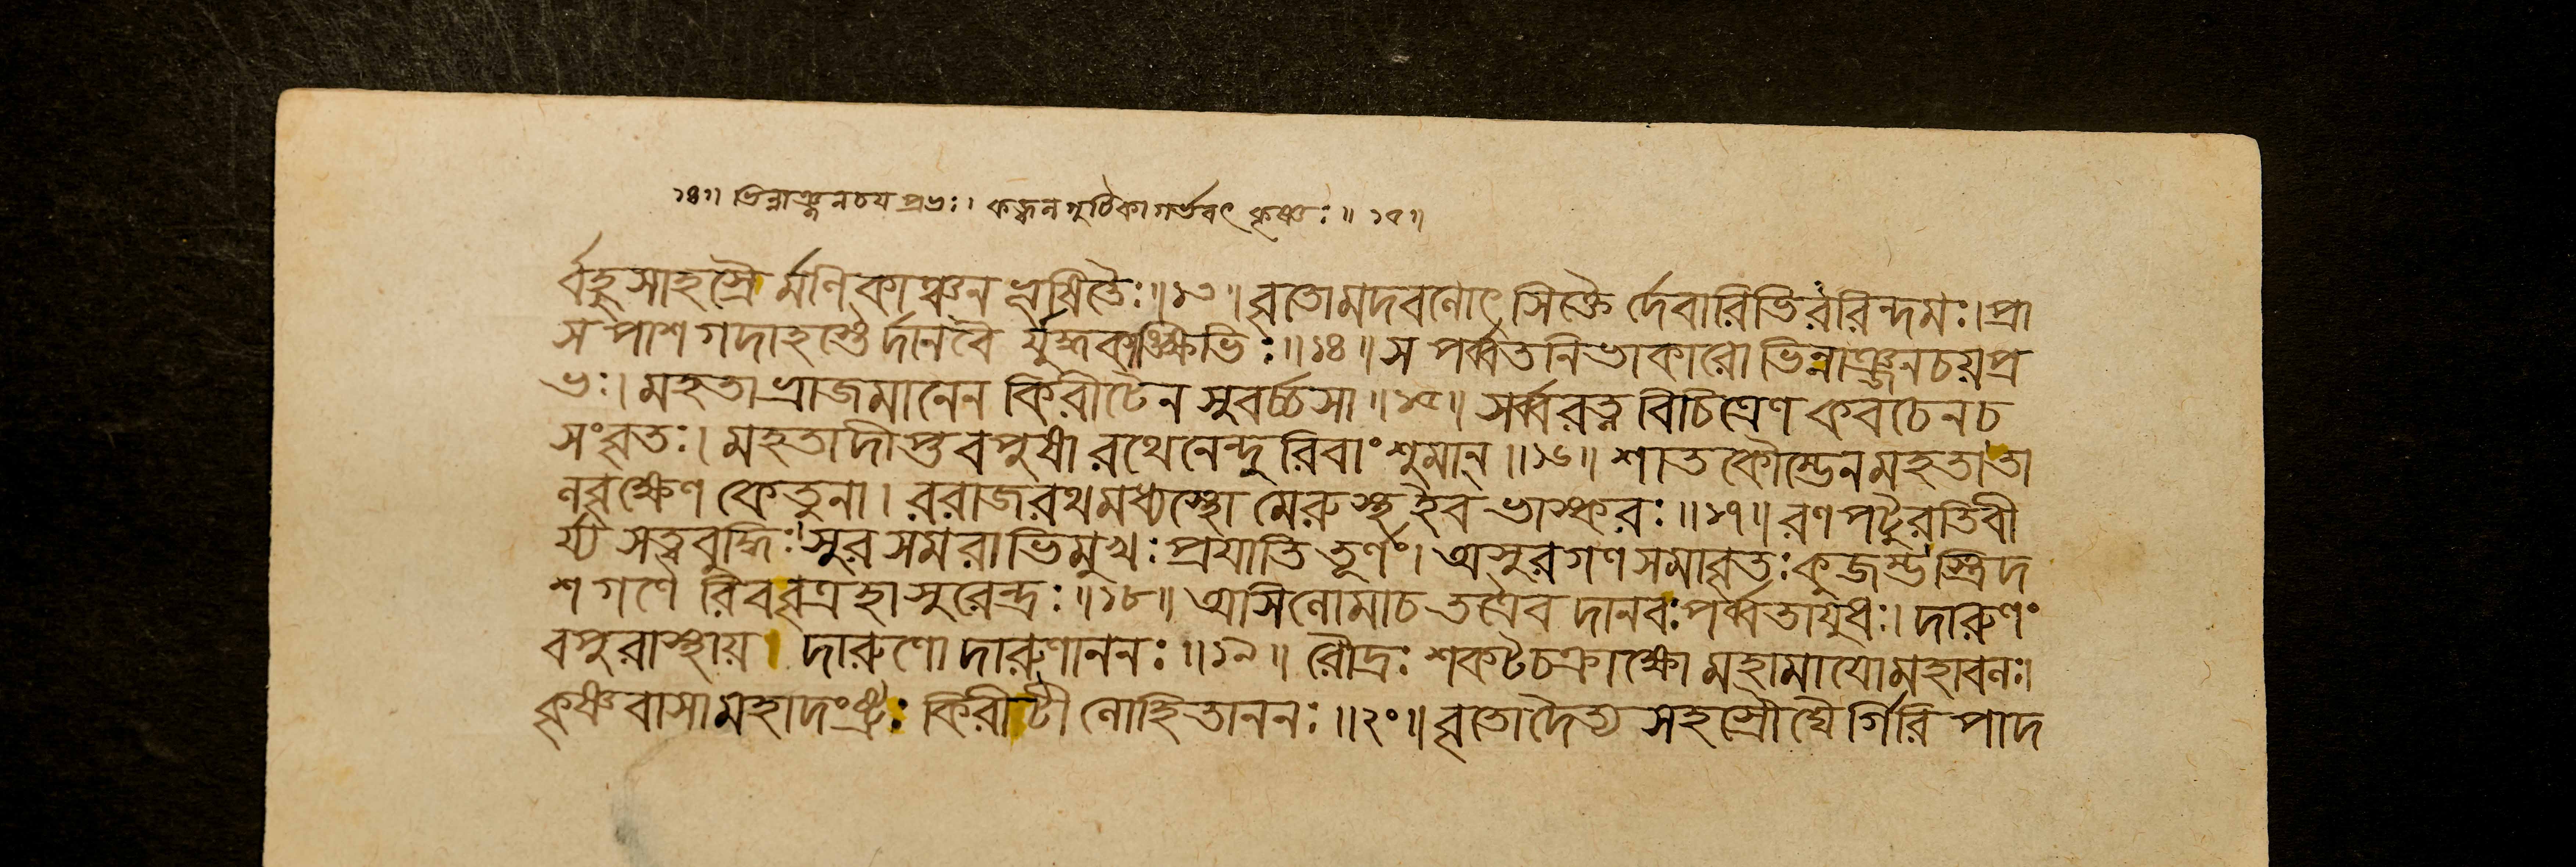 ১৪॥ ভিন্নাঞ্জনচয প্রভঃ। কজ্জল গুটিকা গর্ভবৎ কৃষ্ণঃ॥ ১৫॥
র্বহুসাহস্রৈ র্মণিকাঞ্চন ভূষিতৈঃ॥১৩॥ বৃতোমদবলোৎসিক্তৈ র্দেবারিভিররিন্দমঃ।প্রা
স পাশ গদাহস্তৈর্দানবৈ র্যুদ্ধকাঙ্ক্ষিভিঃ॥১৪॥স পর্ব্বতনিভাকারো ভিন্নাঞ্জনচয়প্র
ভঃ। মহতা ভ্রাজমানেন কিরীটেন সুবর্চ্চসা॥১৫॥ সর্ব্বরত্ন বিচিত্রেণ কবচেন চ
সংবৃতঃ। মহতাদীপ্তবপুষা রথেনেন্দুরিবাংশুমান্॥১৬॥ শাতকৌম্ভেনমহতা তা
লবৃক্ষেণ কেতুনা। ররাজরথমধ্যস্থো মেরুস্থইব ভাস্করঃ॥১৭॥রণপটুরতিবী
র্য্য সত্ত্ববুদ্ধিঃ সুর সমরাভিমুখঃ প্রযাতি তূর্ণং। অসুরগণসমাবৃতঃ কুজম্ভস্ত্রিদ
শ গণৈ রিববৃত্রহাসুরেন্দ্রঃ॥১৮॥ অসিলোমাচ তত্রৈব দানবঃ পর্ব্বতাযুধঃ। দারুণং
বপুরাস্থায়। দারুণো দারুণাননঃ॥১৯॥ রৌদ্রঃ শকটচক্রাক্ষো মহামাযোমহাবলঃ।
কৃষ্ণবাসামহাদংষ্ট্রঃ কিরীটী লোহিতাননঃ॥২০॥বৃতোদৈত্য সহস্রৌঘৈর্গিরি পাদ